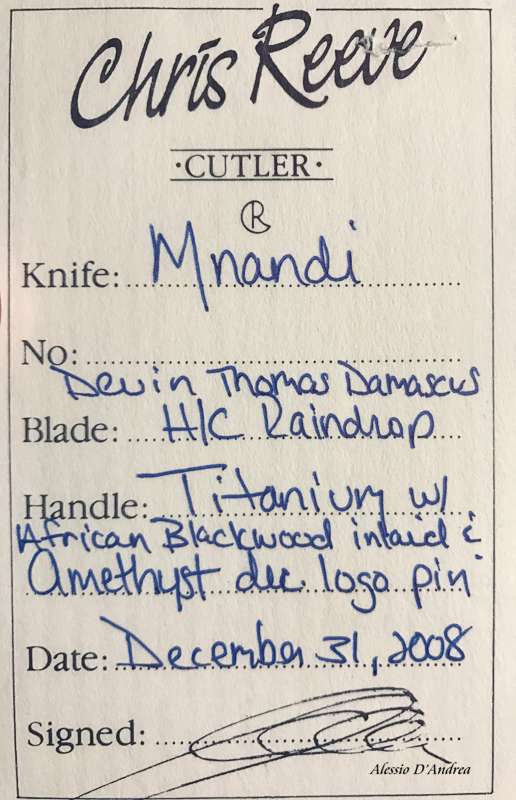 Chris Reeve
·CUTLER·
R
Knife: Mnandi
No:
Devin Thomas Damascus
Blade: H/C Raindrop
Handle: Titanium w/
African Blackwood inlaid &
Amethyst dec. logo pin
Date: December 31, 2008
Signed:
Alessio D'Andrea